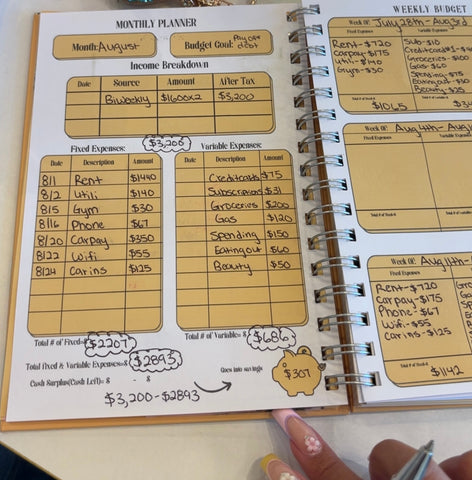 MONTHLY PLANNER
Month: August
Budget Goal: Pay off debt
Income Breakdown
Date Source Amount After Tax
Biweekly $1600x2 $3,200
$3,200
Fixed Expenses:
Date Description Amount
8/1 Rent $1440
8/2 Utili $140
8/5 Gym $30
8/16 Phone $67
8/20 Carpay $350
8/22 Wifi $55
8/24 Car ins $125
Total # of Fixed= $2207
Variable Expenses:
Date Description Amount
Creditcards $75
Subscriptions $31
Groceries $200
Gas $120
Spending $150
Eating out $60
Beauty $50
Total # of Variable= $686
Total Fixed & Variable Expenses=$ $2893
Cash Surplus(Cash Left)= $ - $
Goes into savings
$307
$3,200-$2893
WEEKLY BUDGET
Week Of: July 28th - Aug 3rd
Fixed Expenses
Rent - $720
Carpay - $175
Utili - $140
Gym - $30
$1065
Sub - $10
Groceries - $100
Gas - $60
Spending - $75
Eating out - $30
Beauty - $25
Week Of: Aug 4th - Aug
Fixed Expenses
Week Of: Aug 11th -
Fixed Expenses
Rent - $720
Carpay - $175
Phone - $67
Wifi - $55
Carins - $125
$1142